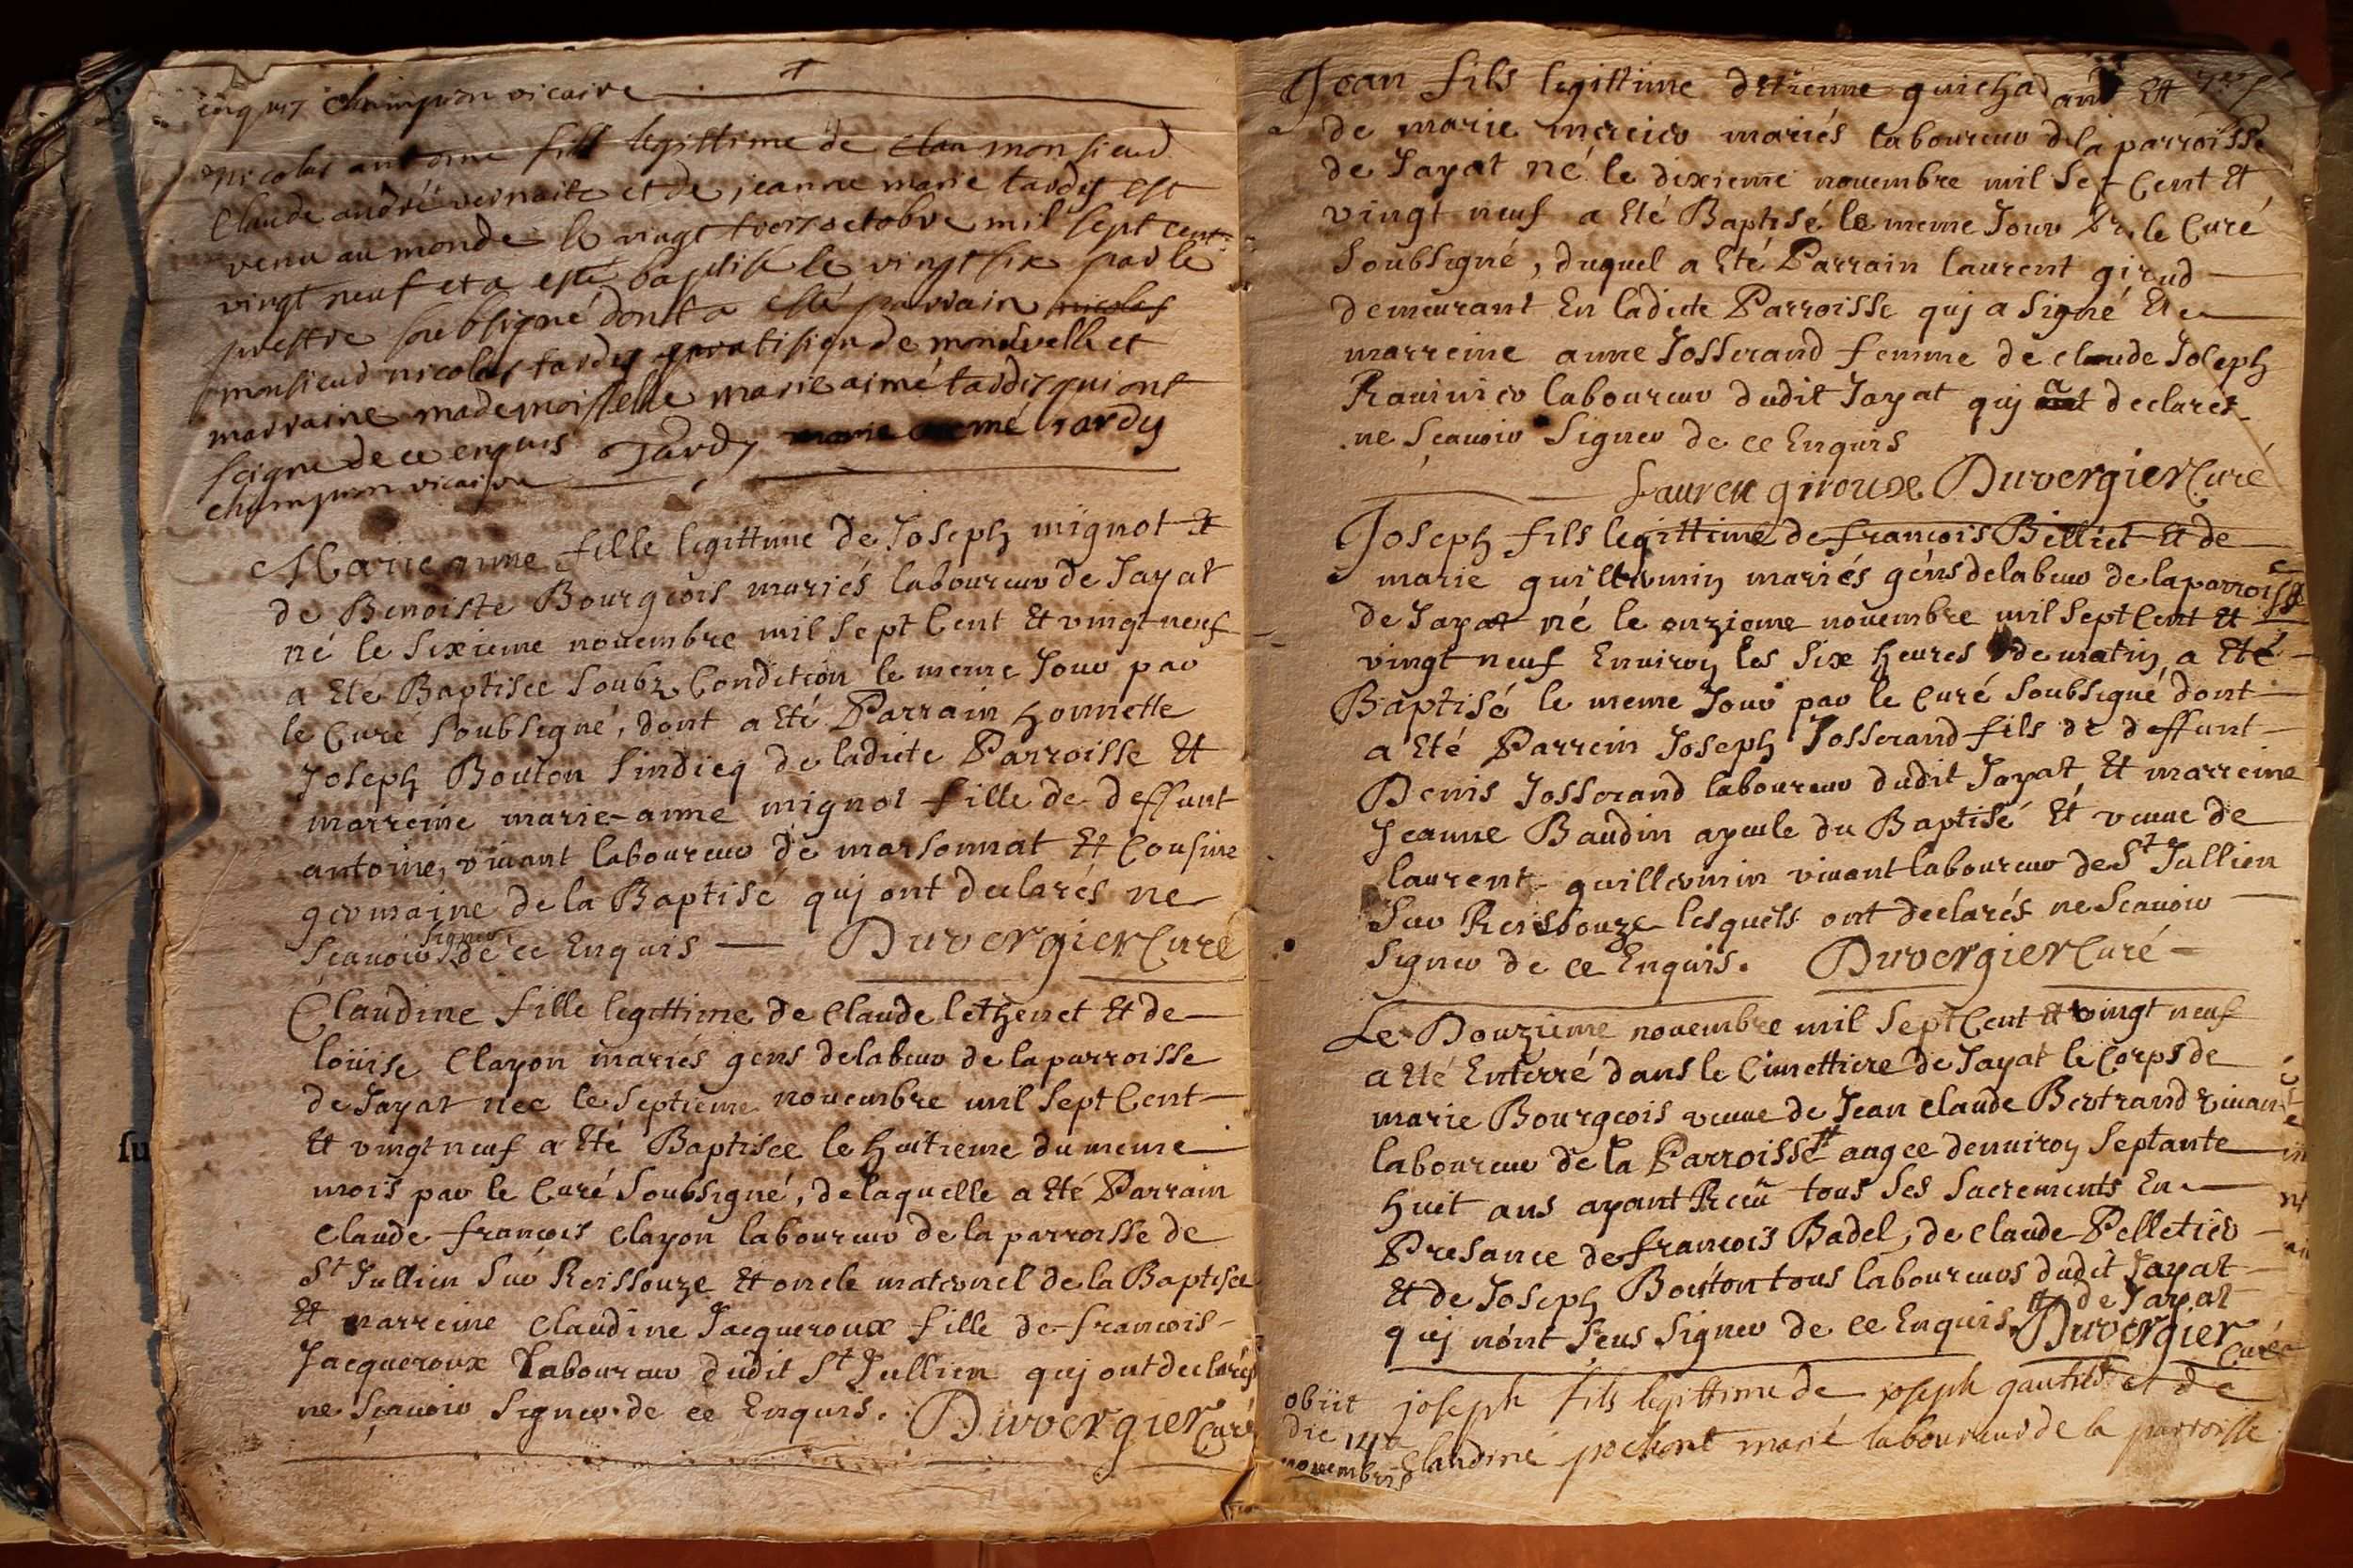 enquis Champion vicaire
Nicolas antoine fils legittime de monsieud
Claude andré vernaite et de jeanne marie tardy est
venu au monde le vingt trois octobre mil sept cent
vingt neuf et a esté baptisé le vingt six par le
prestre soubsigné dont a esté parrain nicolas
monsieud nicolas tardy de et
marraine mademoiselle marie aimé tardy qui ont
seigne de ce enquis Tardy marie aimé tardy
Champion vicaire
Marie anne fille legittime de Joseph mignot Et
de Benoiste Bourgeois mariés laboureur de Jayat
né le Sixieme novembre mil Sept Cent Et vingt neuf
a Eté Baptisee Soubz Condition le meme Jour par
le Curé Soubsigné, dont a Eté Parrain honnette
Joseph Bouton Sindicq de ladicte Parroisse Et
marreine marie-anne mignot fille de deffunt
antoine, vivant laboureur de marsonnat Et Cousine
germaine de la Baptisé quj ont declarés ne
Sçauoir Signer de ce Enquis Duvergier Curé
Claudine fille legittime de Claude lethenet Et de
loüise Clayon mariés gens delabeur de la parroisse
de Jayat nee le Septieme novembre mil Sept Cent
Et vingt neuf a Eté Baptisee le huitieme du meme
mois par le Curé Soubsigné, de laquelle a Eté Parrain
Claude francois Clayon laboureur de la parroisse de
St Jullien Sur Reissouze Et oncle maternel de la Baptisee
Et marreine Claudine Jacqueroux fille de francois
Jacqueroux laboureur dudit St Jullien quj ont declarés
ne Sçauoir Signer de ce Enquis. Duvergier Curé
Jean fils legittime detienne guichard and Et
de marie mercier mariés laboureur dela parroisse
de Jayat né le dixieme novembre mil Sept Cent Et
vingt neuf a Eté Baptisé le meme Jour Pr. le Curé
Soubsigné, duquel a Eté Parrain laurent girud
demeurant En ladicte Parroisse quj a Signé Et
marreine anne Josserand femme de claude Joseph
Rauinier laboureur dudit Jayat quj a declarés
ne Sçauoir Signer de ce Enquis
lauren giroux Duvergier Curé
Joseph fils legittime de francois Billiet Et de
marie guillermin mariés géns delabeur de la parroisse
de Jayat né le onzieme novembre mil Sept Cent Et
vingt neuf Enuiron les Six heures de matin a Eté
Baptisé le meme Jour par le Curé Soubsigné dont
a Eté Parrein Joseph Josserand fils de deffunt
Denis Josserand laboureur dudit Jayat Et marreine
Jeanne Baudin ayeule du Baptisé Et veuue de
laurent guillermin viuant laboureur de St Jullien
Sur Reissouze lesquels ont declarés ne Scauoir
Signer de ce Enquis. Duvergier Curé
Le Douzieme novembre mil Sept Cent Et vingt neuf
a Eté Enterré dans le Cimettiere de Jayat le Corps de
marie Bourgeois veuue de Jean Claude Bertrand viuant
laboureur de la Parroisse augee denuiron Septante
huit ans ayant Receü tous Ses Sacrements En
Presance de francois Badel, de Claude Pelletier
Et de Joseph Bouton tous laboureurs dudit Jayat
quj nónt Sceus Signer de ce Enquis. # de Jayat
Duvergier Curé
obiit
die 14a
novembris
joseph fils legittime de joseph gautier et de
Claudine pochont marié laboureur de la parroisse